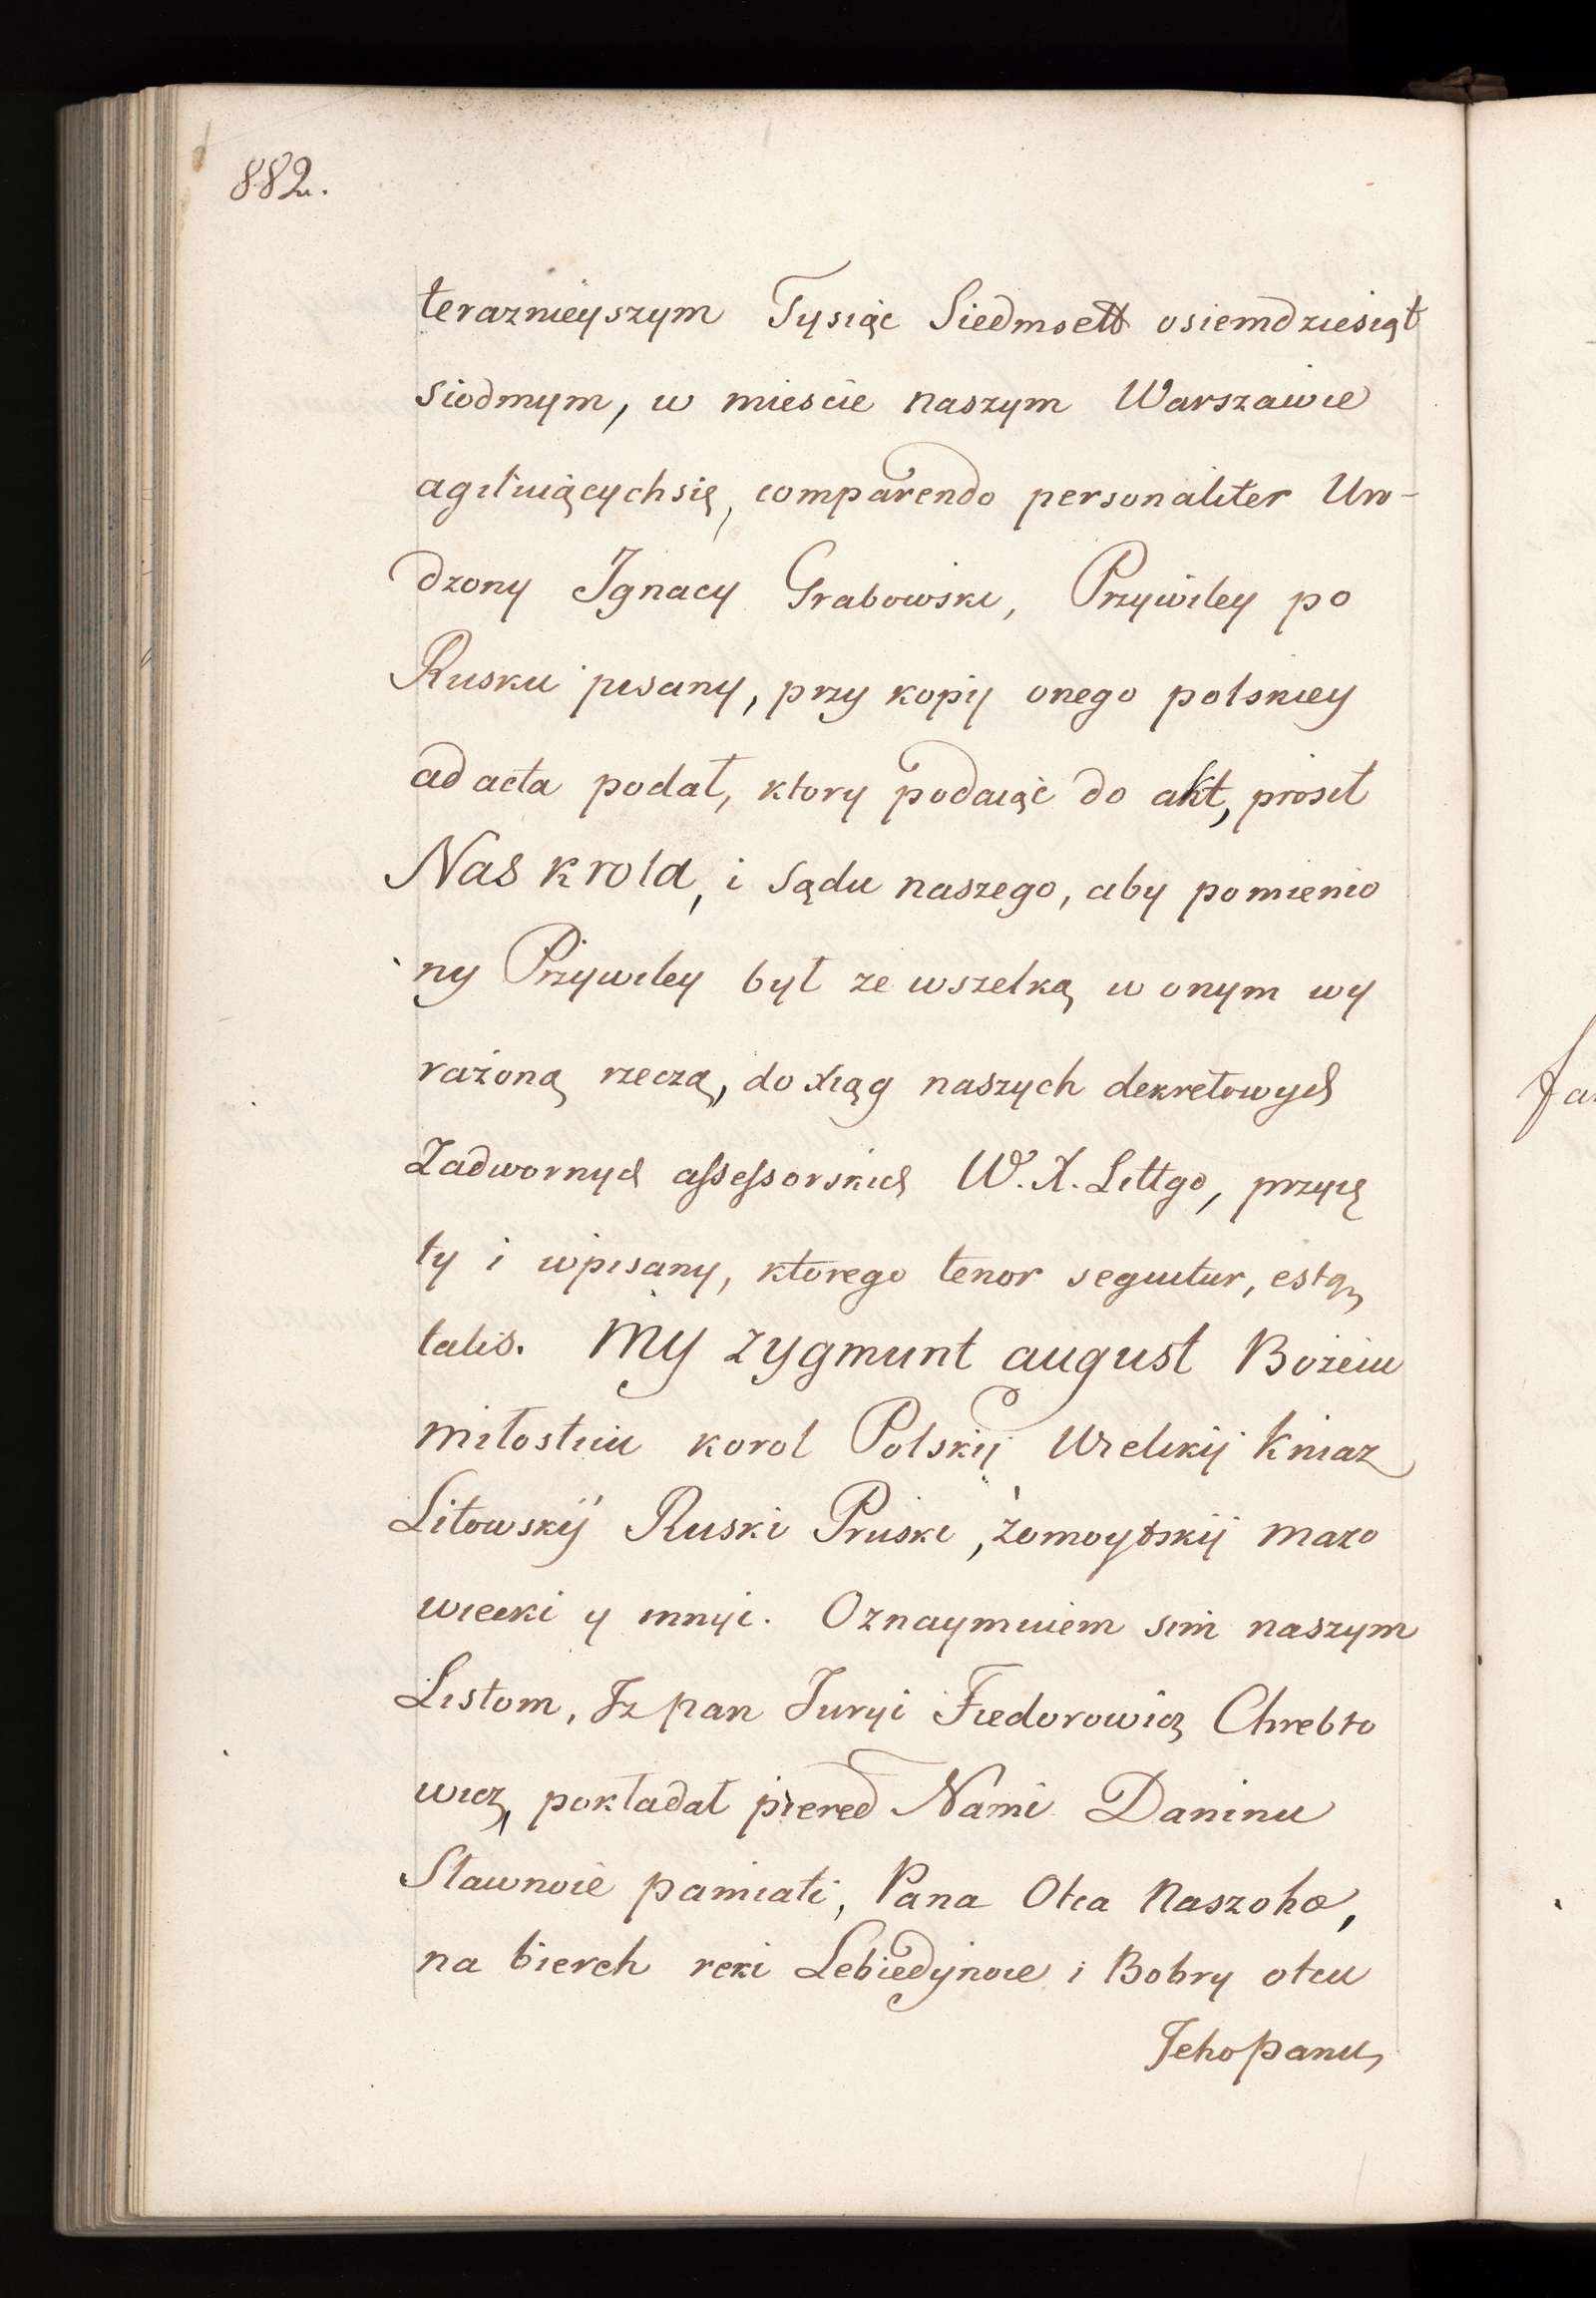 882.
teraznieyszym Tysiąc Siedmsett osiemdziesiąt
siodmym, w miescie naszym Warszawie
agituiącychsię, comparendo personaliter Uro-
dzony Ignacy Grabowski, Przywiley po
Rusku pisany, przy kopij onego polskiey
ad acta podał, ktory podaiąc do akt, prosił
Nas krola, i sądu naszego, aby pomienio
ny Przywiley był ze wszelką w onym wy
rażoną rzeczą, do xiąg naszych dekretowych
Zadwornych assessorskich W. X. Littgo, przyię
ty i wpisany, ktorego tenor sequitur, estq,
talis. My Zygmunt august Bożeiu
miłostiu korol Polskij Wielikij kniaz
Litowskij Ruski Pruski, żomoytskij mazo
wiecki y innyi. Oznaymuiem sim naszym
Listom, Iz pan Juryi Fiedorowicz Chrebto
wicz, pokładał piered Nami Daninu
Sławnoie pamiati, Pana Otca Naszoho,
na bierch reki Lebiedynoie i Bobry otcu
Jeho panu,